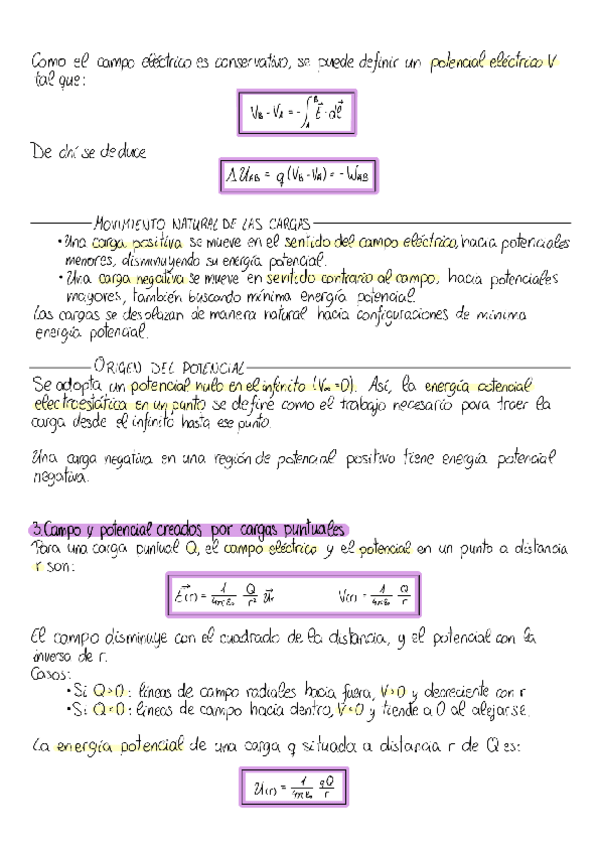 Como el campo eléctrico es conservativo, se puede definir un potencial eléctrico V
tal que:
V_B - V_A = -∫_A^B E⃗ · dl⃗
De ahí se deduce
ΔU_AB = q (V_B - V_A) = - W_AB
MOVIMIENTO NATURAL DE LAS CARGAS
• Una carga positiva se mueve en el sentido del campo eléctrico, hacia potenciales
menores, disminuyendo su energía potencial.
• Una carga negativa se mueve en sentido contrario al campo, hacia potenciales
mayores, también buscando mínima energía potencial.
Las cargas se desplazan de manera natural hacia configuraciones de mínima
energía potencial.
ORIGEN DEL POTENCIAL
Se adopta un potencial nulo en el infinito (V∞ = 0). Así, la energía potencial
electroestática en un punto se define como el trabajo necesario para traer la
carga desde el infinito hasta ese punto.
Una carga negativa en una región de potencial positivo tiene energía potencial
negativa.
3. Campo y potencial creados por cargas puntuales
Para una carga puntual Q, el campo eléctrico y el potencial en un punto a distancia
r son:
E⃗(r) = 1/(4πε₀) Q/r² u⃗r V(r) = 1/(4πε₀) Q/r
El campo disminuye con el cuadrado de la distancia, y el potencial con la
inversa de r.
Casos:
• Si Q>0: líneas de campo radiales hacia fuera, V>0 y decreciente con r
• Si Q<0: líneas de campo hacia dentro, V<0 y tiende a 0 al alejarse.
La energía potencial de una carga q situada a distancia r de Q es:
U(r) = 1/(4πε₀) qQ/r